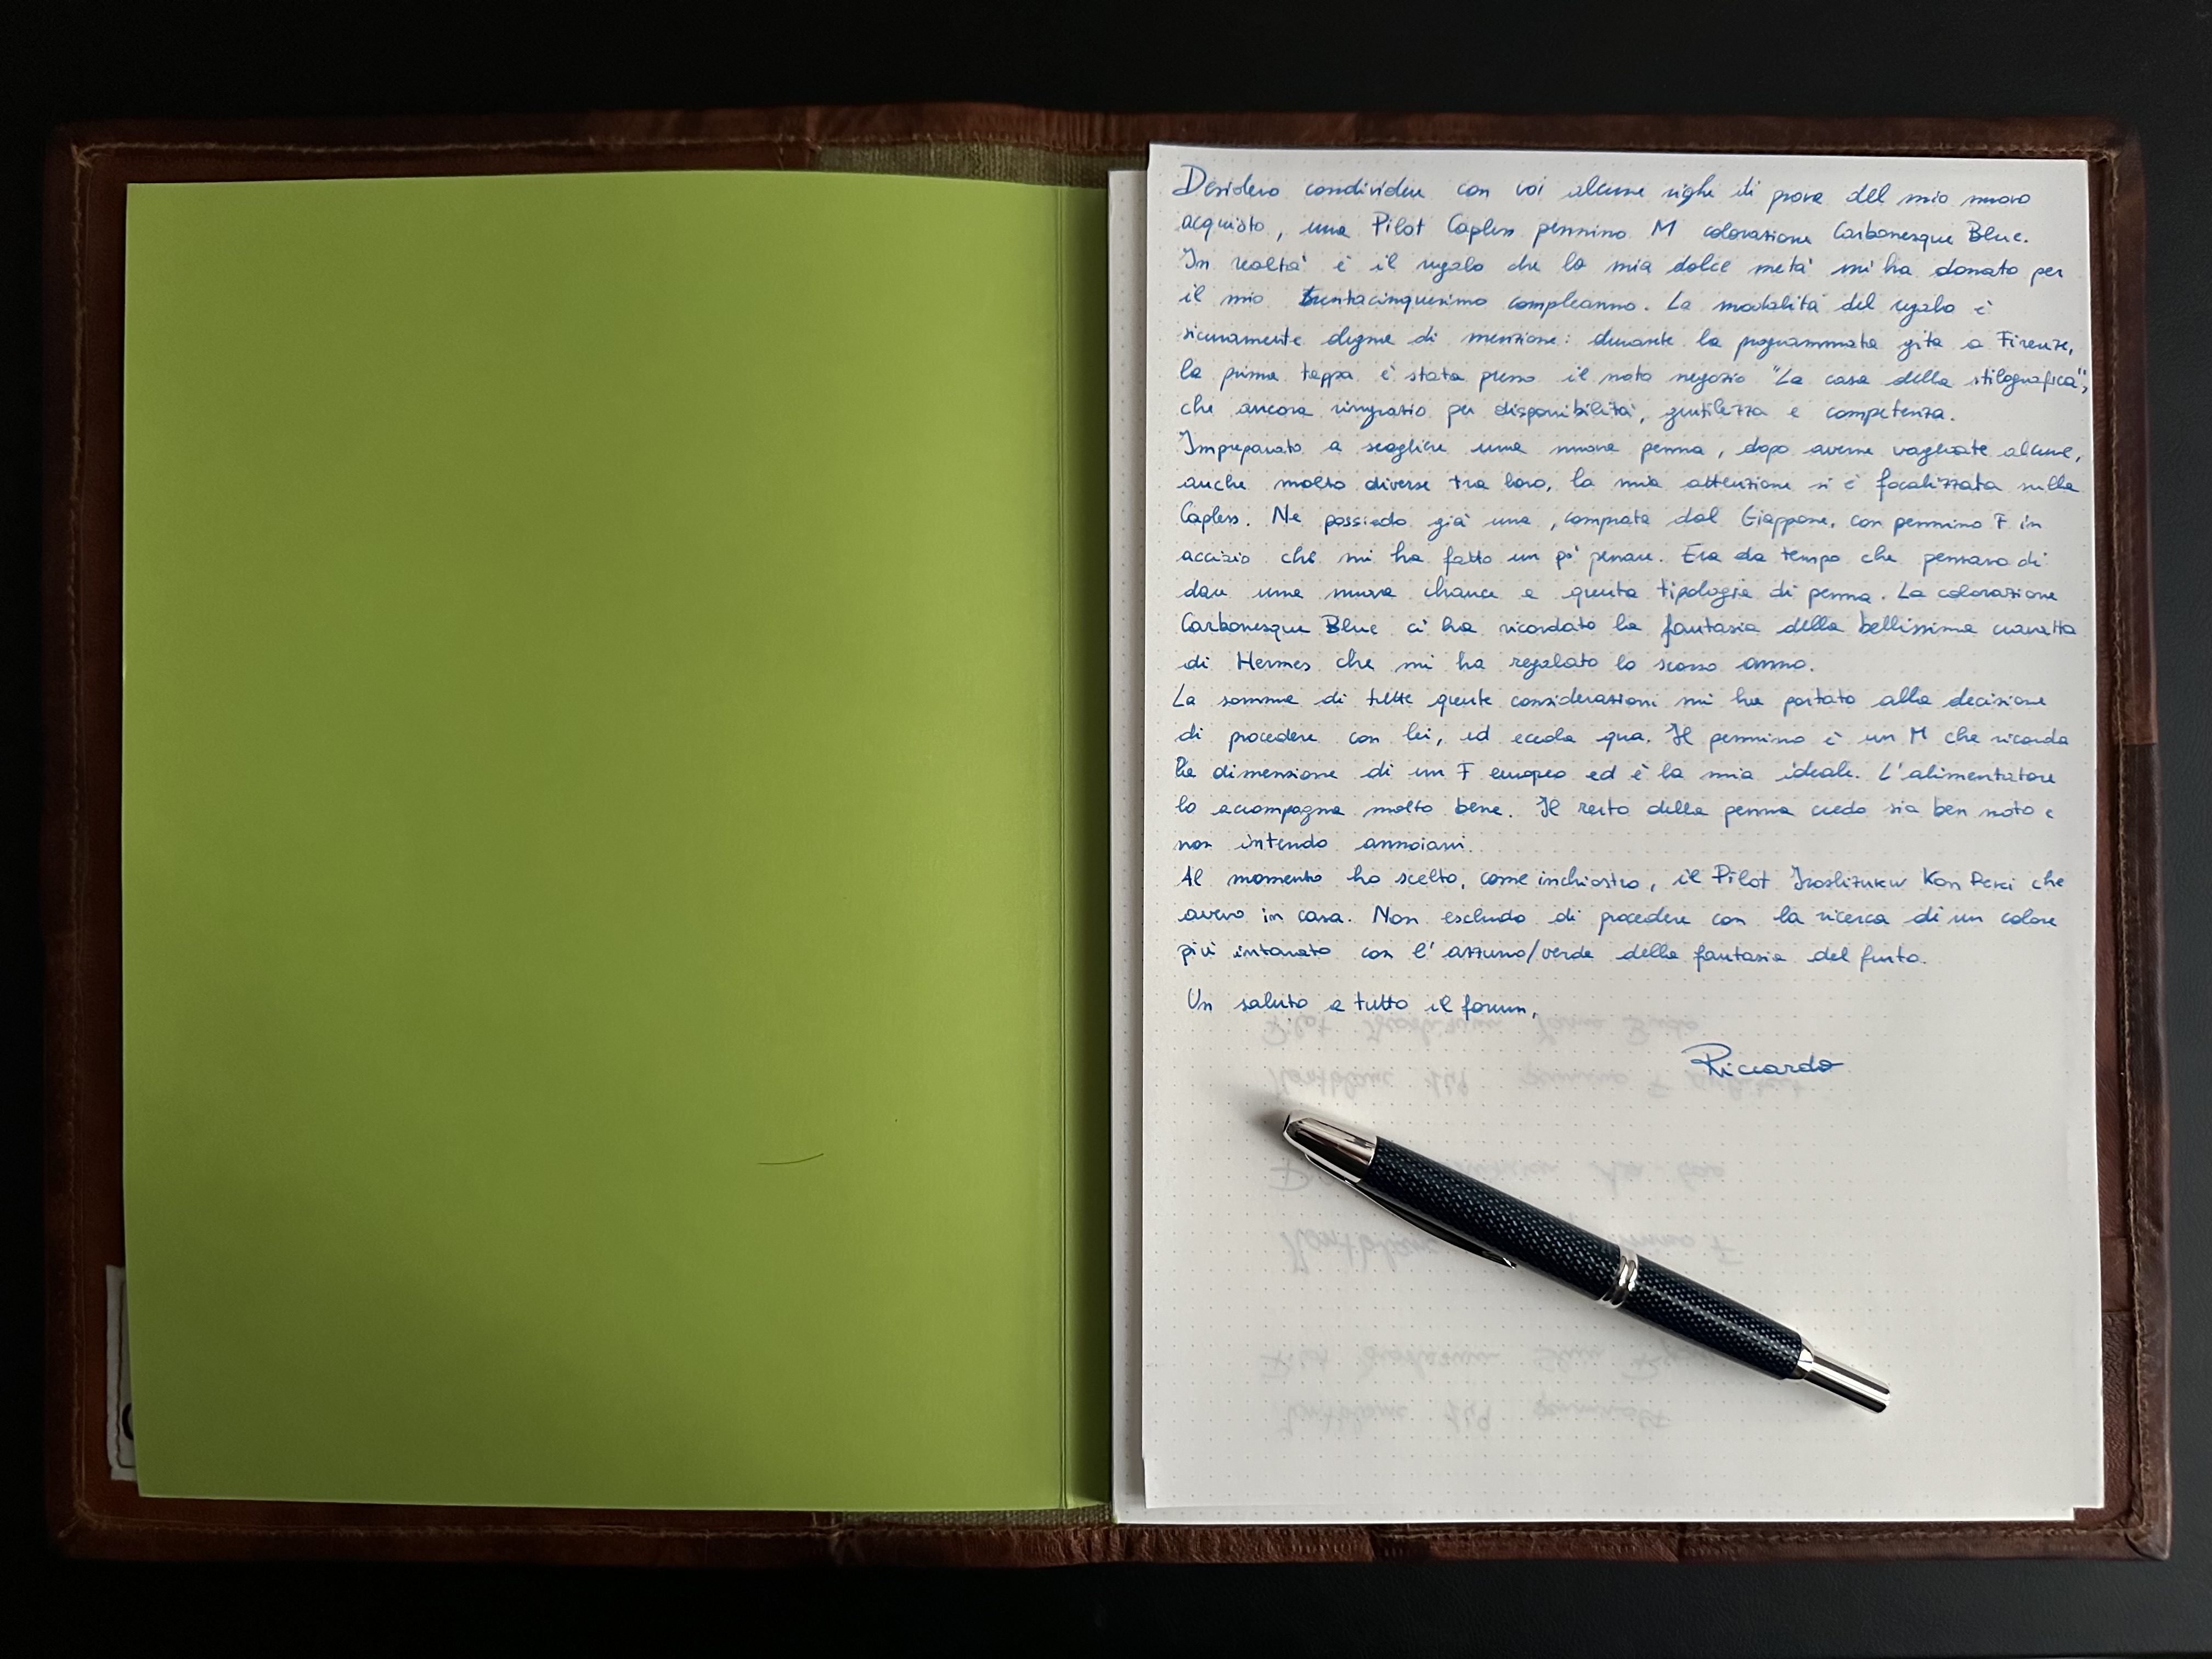 Desidero condividere con voi alcune righe di prova del mio nuovo
acquisto, una Pilot Capless pennino M colorazione Carbonesque Blue.
In realtà è il regalo che la mia dolce metà mi ha donato per
il mio trentacinquesimo compleanno. La modalità del regalo è
sicuramente degna di menzione: durante la programmata gita a Firenze,
la prima tappa è stata presso il noto negozio "La casa della stilografica",
che ancora ringrazio per disponibilità, gentilezza e competenza.
Impreparato a scegliere una nuova penna, dopo averne vagliate alcune,
anche molto diverse tra loro, la mia attenzione si è focalizzata sulla
Capless. Ne possiedo già una, comprata dal Giappone, con pennino F in
acciaio che mi ha fatto un pò penare. Era da tempo che pensavo di
dare una nuova chance a questa tipologia di penna. La colorazione
Carbonesque Blue ci ha ricordato la fantasia della bellissima cravatta
di Hermes che mi ha regalato lo scorso anno.
La somma di tutte queste considerazioni mi ha portato alla decisione
di procedere con lei, ed eccola qua. Il pennino è un M che ricorda
la dimensione di un F europeo ed è la mia ideale. L'alimentatore
lo accompagna molto bene. Il resto della penna credo sia ben noto e
non intendo annoiarvi.
Al momento ho scelto, come inchiostro, il Pilot Iroshizuku Kon Peki che
avevo in casa. Non escludo di procedere con la ricerca di un colore
più intonato con l'azzurro/verde della fantasia del fusto.
Un saluto a tutto il forum,
Riccardo